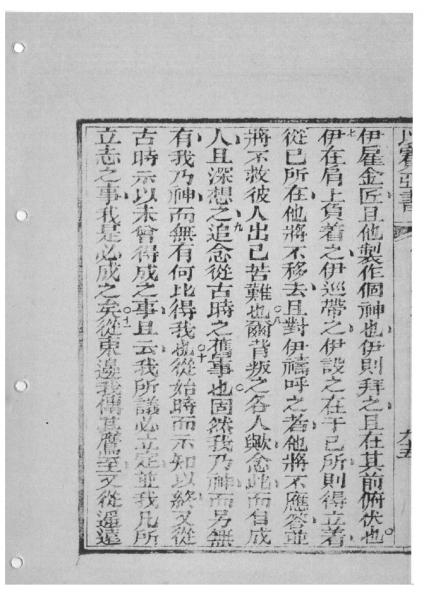 以賽亞書
九五
伊雇金匠且他製作個神也伊則拜之且在其前俯伏也
七伊在肩上負着之伊巡帶之伊設之在于已所則得立着
從已所在他將不移去且對伊禱呼之者他將不應答並
將不救彼人出已苦難也八爾背叛之各人歟念此而自成
人且深想之九追念從古時之舊事也固然我乃神而另無
有我乃神而無有何比得我也十從始時而示知以終又從
古時示以未曾得成之事且云我所議必立定並我凡所
立志之事我是必成之矣十一從東邊我傳其鷹至又從遥遠